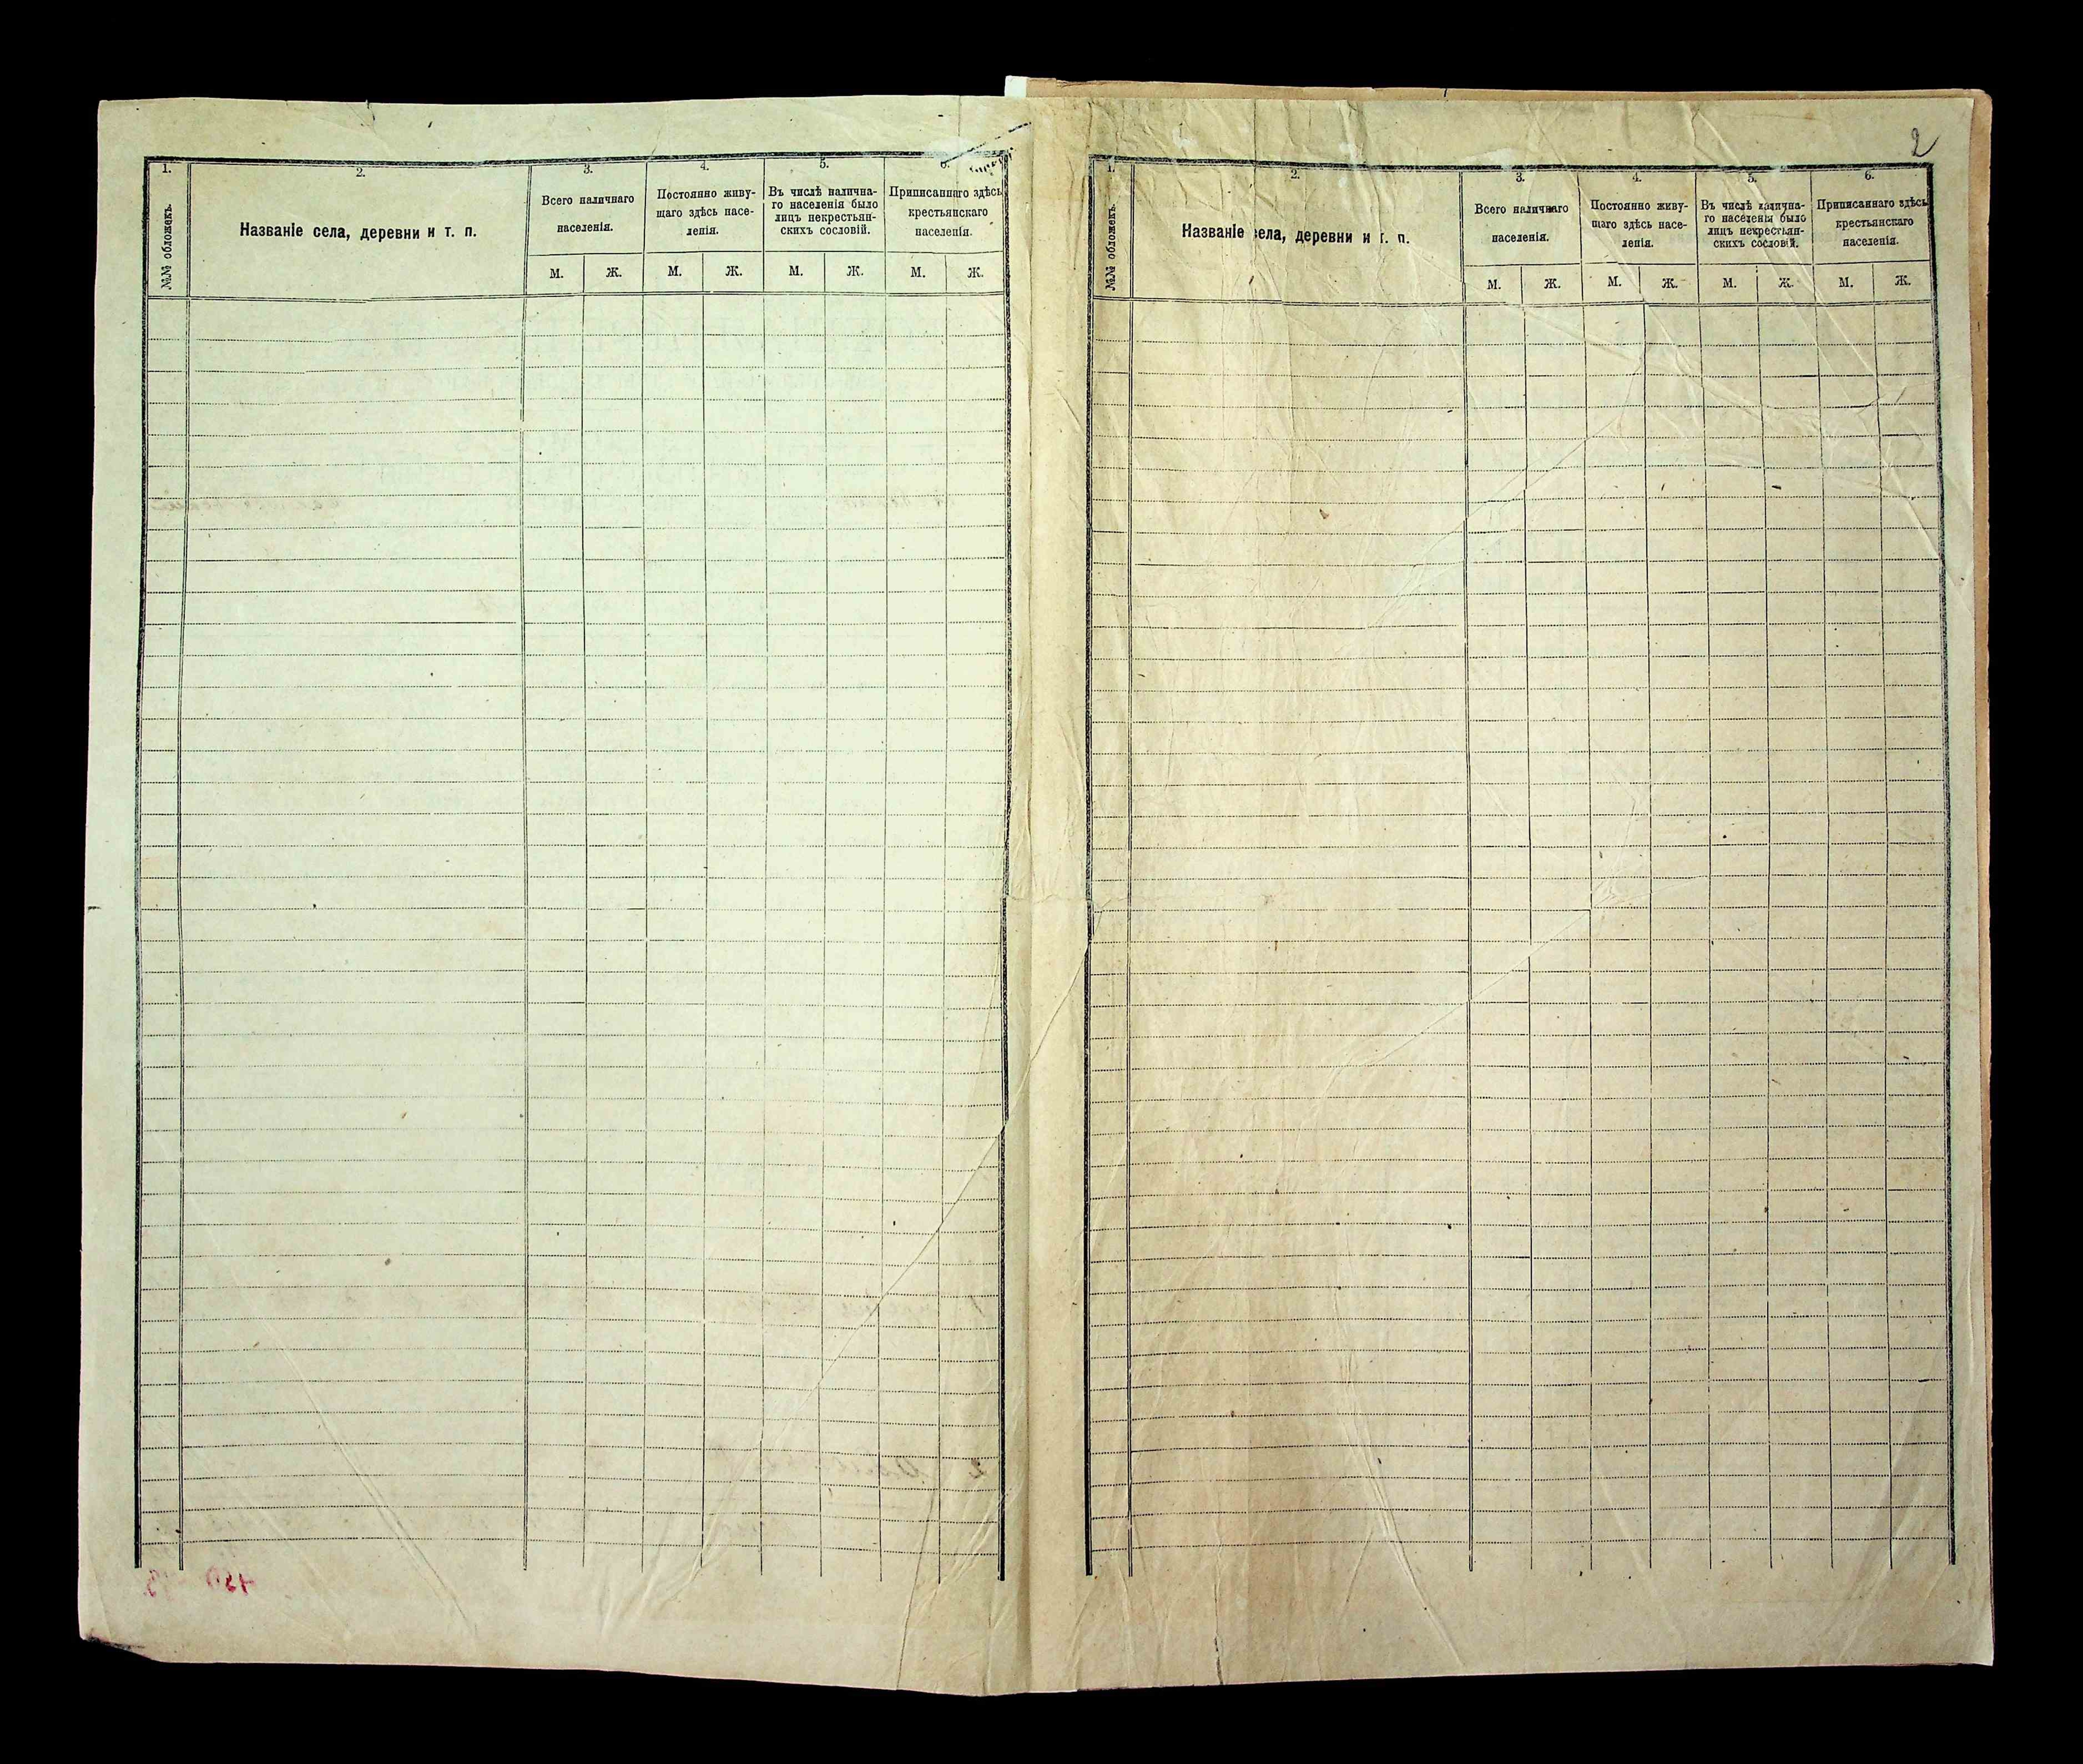 2
1.
2.
3.
4.
5.
6.
№№ обложекъ.
Названіе села, деревни и т. п.
Всего наличнаго
населенія.
Постоянно живу-
щаго здѣсь насе-
ленія.
Въ числѣ налична-
го населенія было
лицъ некрестьян-
скихъ сословій.
Приписаннаго здѣсь
крестьянскаго
населенія.
М. Ж. М. Ж. М. Ж. М. Ж.
1.
2.
3.
4.
5.
6.
№№ обложекъ.
Названіе села, деревни и т. п.
Всего наличнаго
населенія.
Постоянно живу-
щаго здѣсь насе-
ленія.
Въ числѣ налична-
го населенія было
лицъ некрестьян-
скихъ сословій.
Приписаннаго здѣсь
крестьянскаго
населенія.
М. Ж. М. Ж. М. Ж. М. Ж.